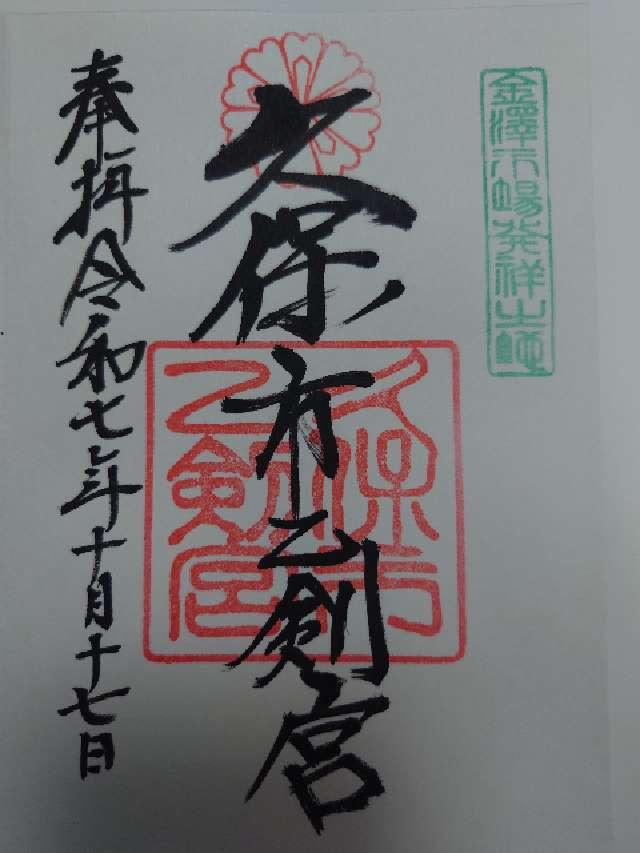 金澤市場発祥之蹟
久保市乙剣宮
久保市
乙剣宮
奉拝令和七年十月十七日